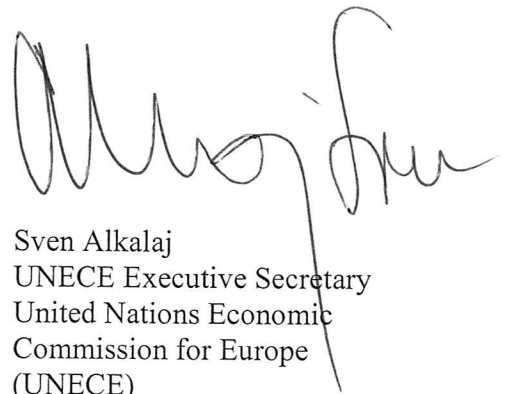 Alkalaj Sven
Sven Alkalaj
UNECE Executive Secretary
United Nations Economic
Commission for Europe
(UNECE)